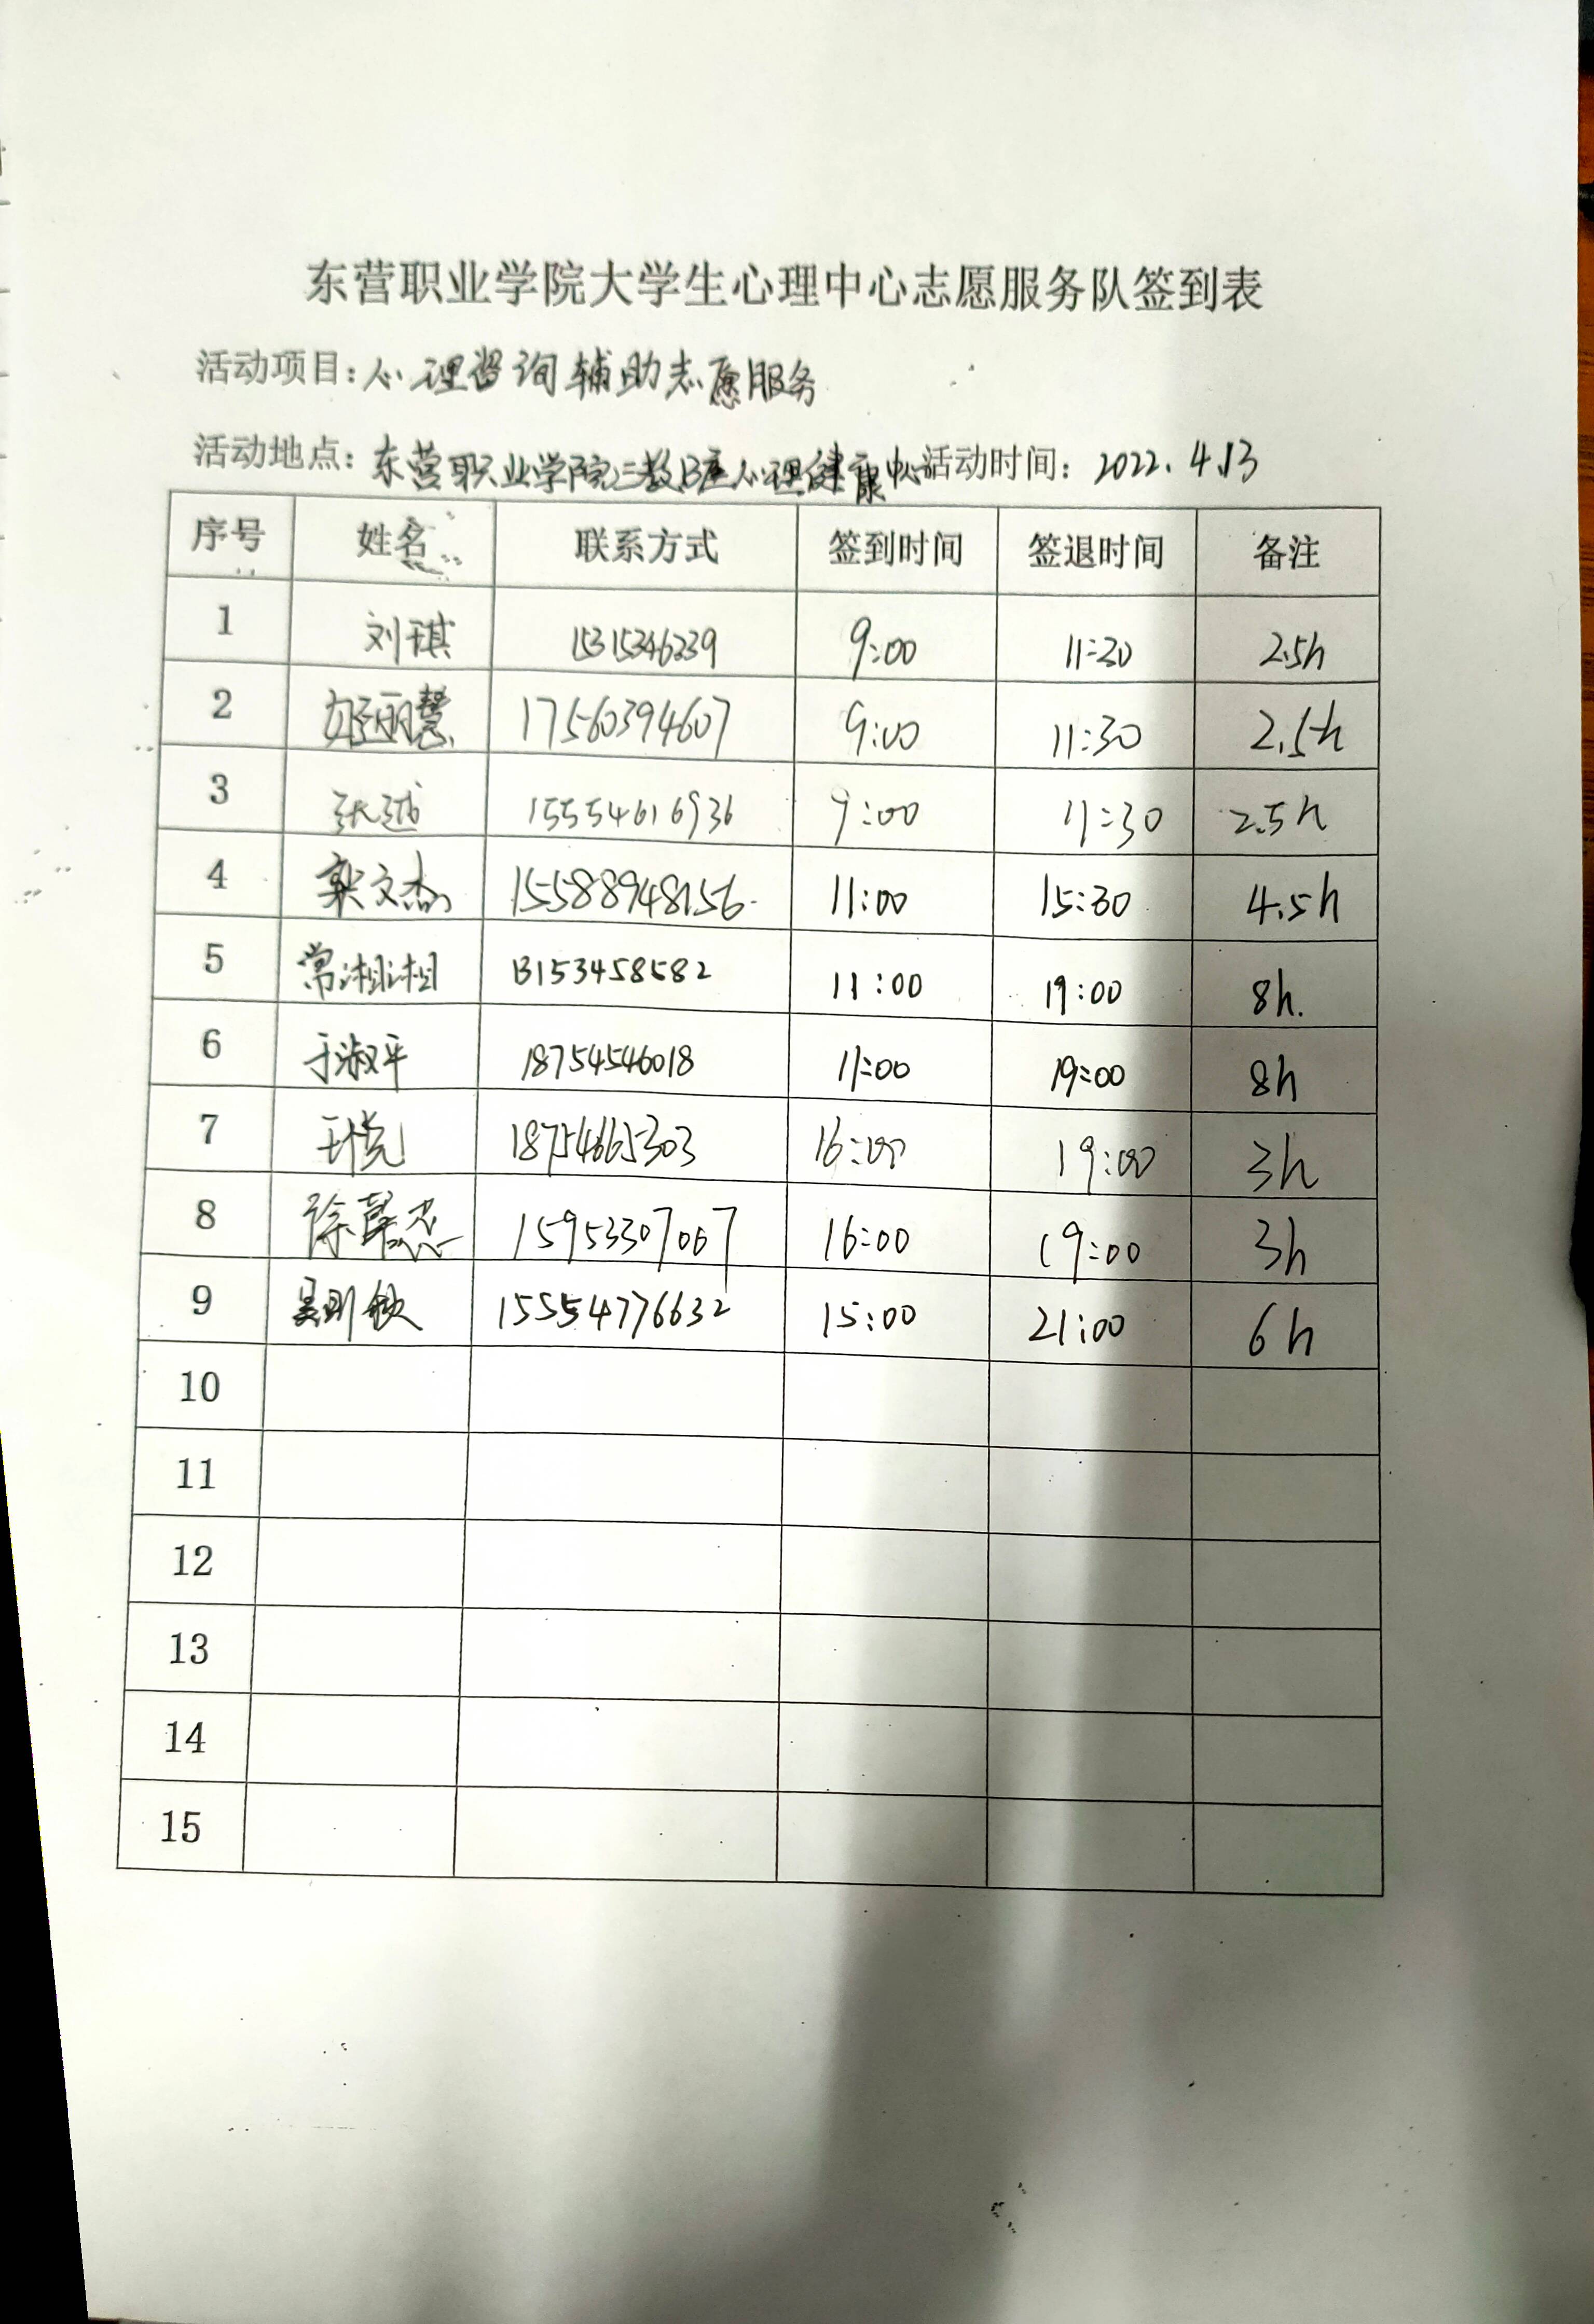 东营职业学院大学生心理中心志愿服务队签到表
活动项目：心理咨询辅助志愿服务
活动地点：东营职业学院三教B座心理健康中心 活动时间：2022.4.13
序号 姓名 联系方式 签到时间 签退时间 备注
1 刘琪 15315346239 9:00 11:30 2.5h
2 17560394607 9:00 11:30 2.5h
3 张越 15554616936 9:00 11:30 2.5h
4 郭文杰 15588948156 11:00 15:30 4.5h
5 常湘湘 13153458582 11:00 19:00 8h.
6 于淑平 18754546018 11:00 19:00 8h
7 18754665303 16:00 19:00 3h
8 15953307007 16:00 19:00 3h
9 15554776632 15:00 21:00 6h
10
11
12
13
14
15